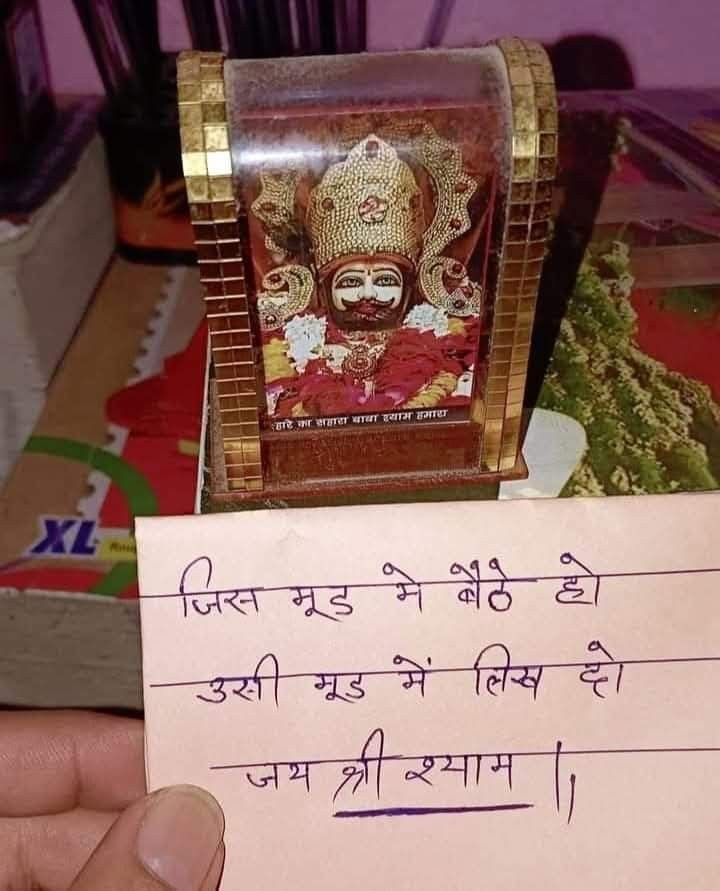 हारे का सहारा बाबा श्याम हमारा
XL
जिस मूड मे बैठे हो
उसी मूड में लिख दो
जय श्री श्याम ||